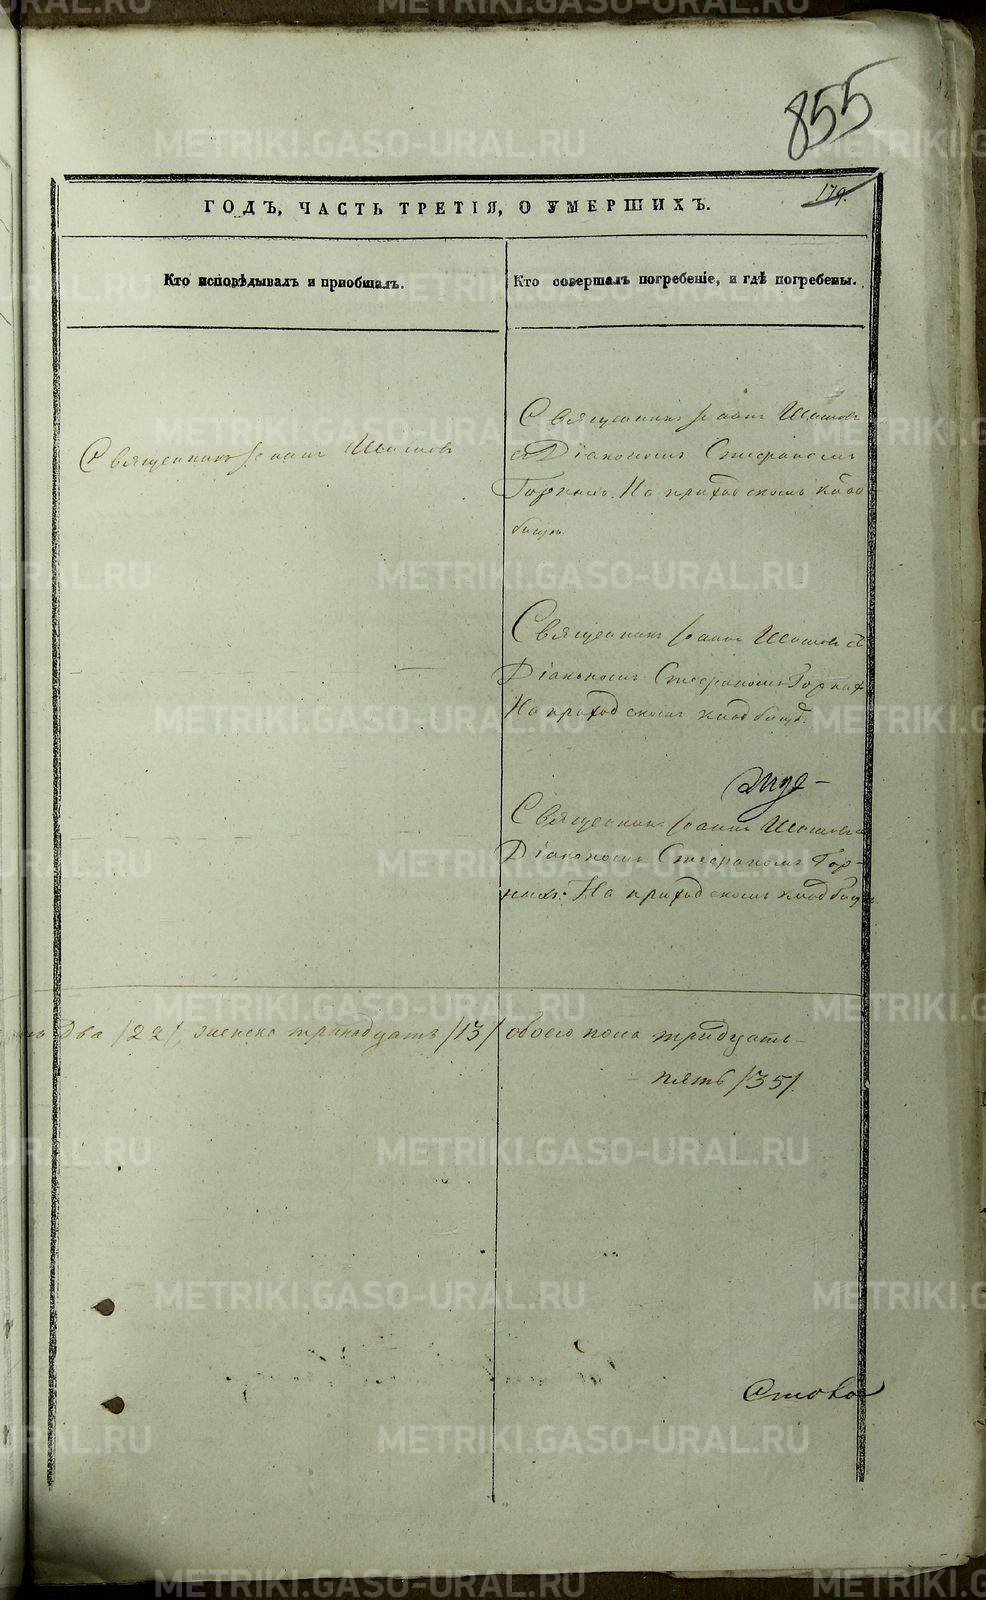 855
179.
ГОДЪ, ЧАСТЬ ТРЕТІЯ, О УМЕРШИХЪ.
Кто исповѣдывалъ и пріобщалъ.
Кто совершалъ погребеніе, и гдѣ погребены.
Священникъ Іоаннъ Шишовъ
Священникъ Іоаннъ Шишовъ
съ Діакономъ Стефаномъ
Горныхъ. На приходскомъ клад-
бищѣ.
Священникъ Іоаннъ Шишовъ съ
Діакономъ Стефаномъ Горныхъ
На приходскомъ кладбищѣ.
Священникъ Іоаннъ Шишовъ съ
Діакономъ Стефаномъ Гор-
ныхъ. На приходскомъ кладбищѣ
два /22/, женска тринадцать /13/ обоего пола тридцать
- пять /35/.
METRIKI.GASO-URAL.RU